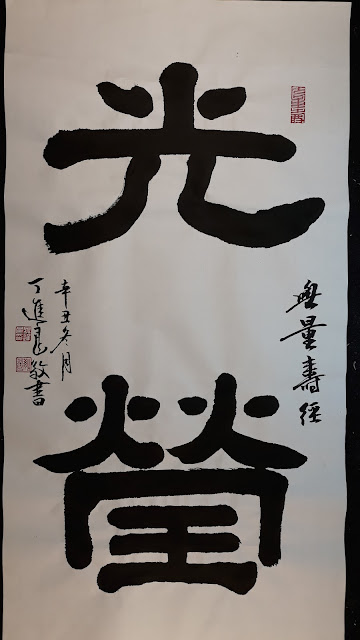 無量壽經
光瑩
辛丑冬月
丁進 敬書